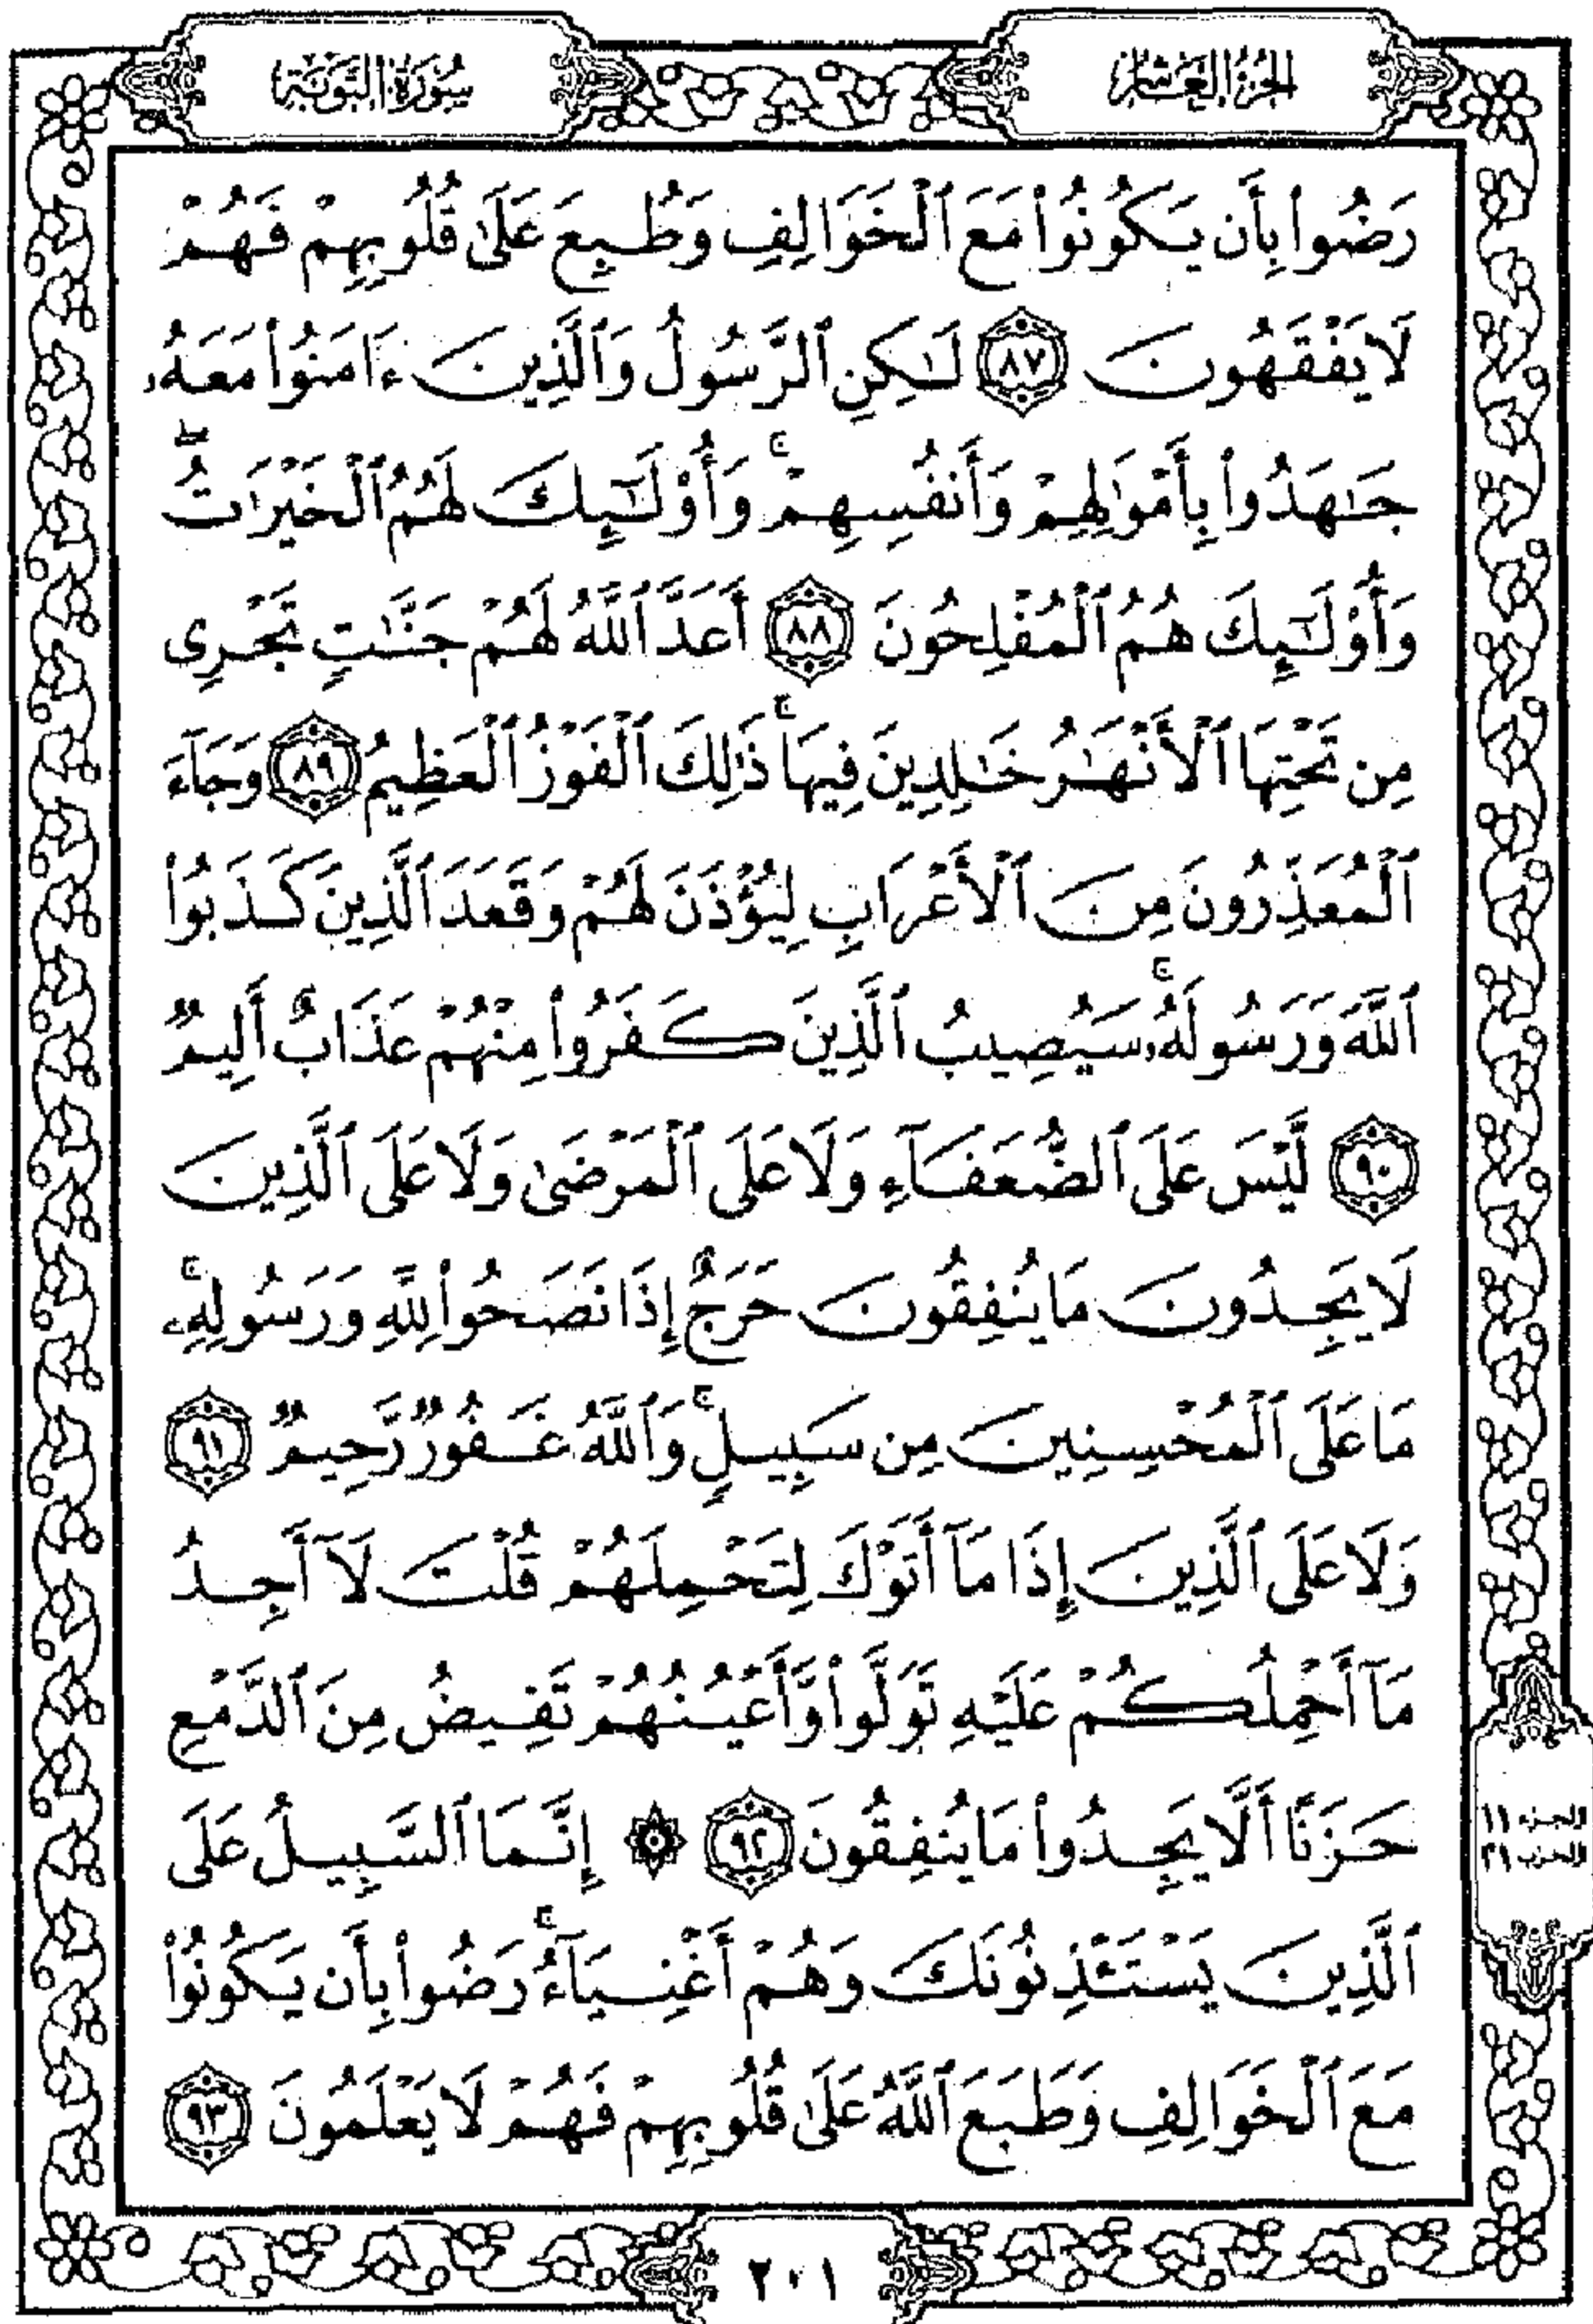 الجزء العاشر
سورة التوبة
رَضُوا۟ بِأَن يَكُونُوا۟ مَعَ ٱلْخَوَالِفِ وَطُبِعَ عَلَىٰ قُلُوبِهِمْ فَهُمْ
لَا يَفْقَهُونَ ٨٧ لَـٰكِنِ ٱلرَّسُولُ وَٱلَّذِينَ ءَامَنُوا۟ مَعَهُۥ
جَـٰهَدُوا۟ بِأَمْوَٰلِهِمْ وَأَنفُسِهِمْ ۚ وَأُو۟لَـٰٓئِكَ لَهُمُ ٱلْخَيْرَٰتُ ۖ
وَأُو۟لَـٰٓئِكَ هُمُ ٱلْمُفْلِحُونَ ٨٨ أَعَدَّ ٱللَّهُ لَهُمْ جَنَّـٰتٍ تَجْرِى
مِن تَحْتِهَا ٱلْأَنْهَـٰرُ خَـٰلِدِينَ فِيهَا ۚ ذَٰلِكَ ٱلْفَوْزُ ٱلْعَظِيمُ ٨٩ وَجَآءَ
ٱلْمُعَذِّرُونَ مِنَ ٱلْأَعْرَابِ لِيُؤْذَنَ لَهُمْ وَقَعَدَ ٱلَّذِينَ كَذَبُوا۟
ٱللَّهَ وَرَسُولَهُۥ ۚ سَيُصِيبُ ٱلَّذِينَ كَفَرُوا۟ مِنْهُمْ عَذَابٌ أَلِيمٌ
٩٠ لَّيْسَ عَلَى ٱلضُّعَفَآءِ وَلَا عَلَى ٱلْمَرْضَىٰ وَلَا عَلَى ٱلَّذِينَ
لَا يَجِدُونَ مَا يُنفِقُونَ حَرَجٌ إِذَا نَصَحُوا۟ لِلَّهِ وَرَسُولِهِۦ ۚ
مَا عَلَى ٱلْمُحْسِنِينَ مِن سَبِيلٍ ۚ وَٱللَّهُ غَفُورٌ رَّحِيمٌ ٩١
وَلَا عَلَى ٱلَّذِينَ إِذَا مَآ أَتَوْكَ لِتَحْمِلَهُمْ قُلْتَ لَآ أَجِدُ
مَآ أَحْمِلُكُمْ عَلَيْهِ تَوَلَّوا۟ وَّأَعْيُنُهُمْ تَفِيضُ مِنَ ٱلدَّمْعِ
حَزَنًا أَلَّا يَجِدُوا۟ مَا يُنفِقُونَ ٩٢ ۞ إِنَّمَا ٱلسَّبِيلُ عَلَى
ٱلَّذِينَ يَسْتَـْٔذِنُونَكَ وَهُمْ أَغْنِيَآءُ ۚ رَضُوا۟ بِأَن يَكُونُوا۟
مَعَ ٱلْخَوَالِفِ وَطَبَعَ ٱللَّهُ عَلَىٰ قُلُوبِهِمْ فَهُمْ لَا يَعْلَمُونَ ٩٣
الجزء ١١
الحزب ٢١
٢٠١